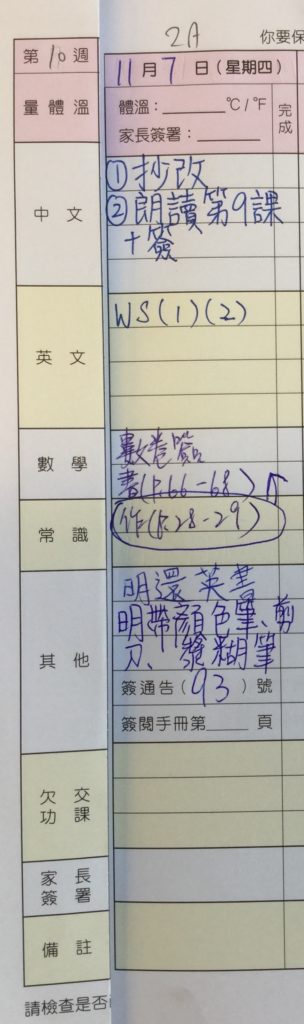 2A
你要保
第10週
11月7日(星期四)
量體溫
體溫:______℃/℉
家長簽署:______
完成
中文
①抄改
②朗讀第9課
+簽
英文
WS(1)(2)
數學
數卷簽
書(P.66-68)
常識
作(P.28-29)
其他
明還英書
明帶顏色筆、剪
刀、漿糊筆
簽通告(93)號
簽閱手冊第____頁
欠交
功課
家長
簽署
備註
請檢查是否